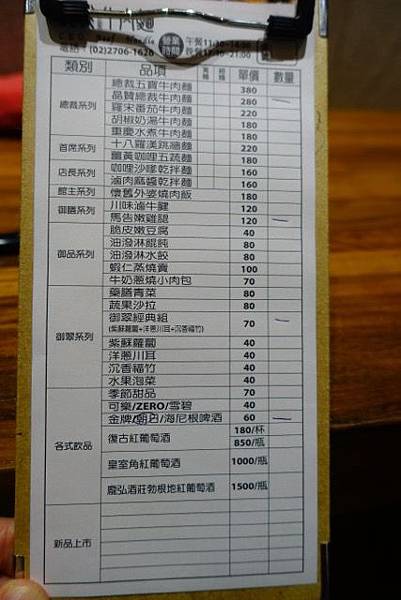 C.E.O. Beef Noodle
電話：(02)2706-1628 營業時間 午餐11:30-14:00
晚餐11:30-21:00
類別 品項 單價 數量
總裁系列
總裁五寶牛肉麵 380
晶贊總裁牛肉麵 280
羅宋番茄牛肉麵 220
胡椒奶湯牛肉麵 180
重慶水煮牛肉麵 180
首席系列
十八羅漢跳牆麵 220
薑黃咖哩五蔬麵 180
店長系列
咖哩沙嗲乾拌麵 160
滷肉麻醬乾拌麵 160
館主系列 懷舊外婆燒肉飯 180
御膳系列
川味滷牛腱 120
馬告嫩雞腿 120
御品系列
脆皮嫩豆腐 40
油潑淋餛飩 80
油潑淋水餃 80
蝦仁蒸燒賣 100
牛奶蔥燒小肉包 70
御翠系列
藥膳青菜 80
蔬果沙拉 80
御翠經典組 70
(紫蘇蘿蔔+洋蔥川耳+沉香福竹)
紫蘇蘿蔔 40
洋蔥川耳 40
沉香福竹 40
水果泡菜 40
各式飲品
季節甜品 70
可樂/ZERO/雪碧 40
金牌/朝日/海尼根啤酒 60
復古紅葡萄酒 180/杯
850/瓶
皇室角紅葡萄酒 1000/瓶
龐弘酒莊勃根地紅葡萄酒 1500/瓶
新品上市